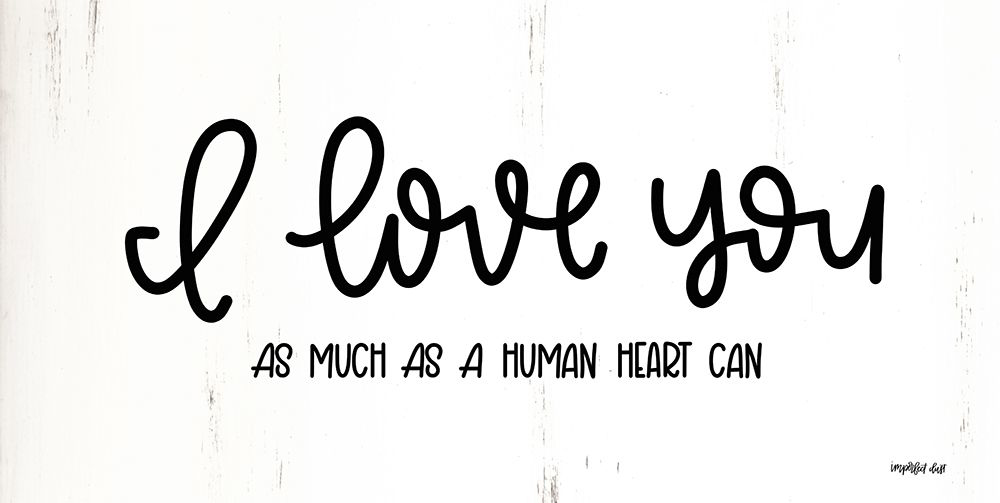 I love you
AS MUCH AS A HUMAN HEART CAN
imperfect dust